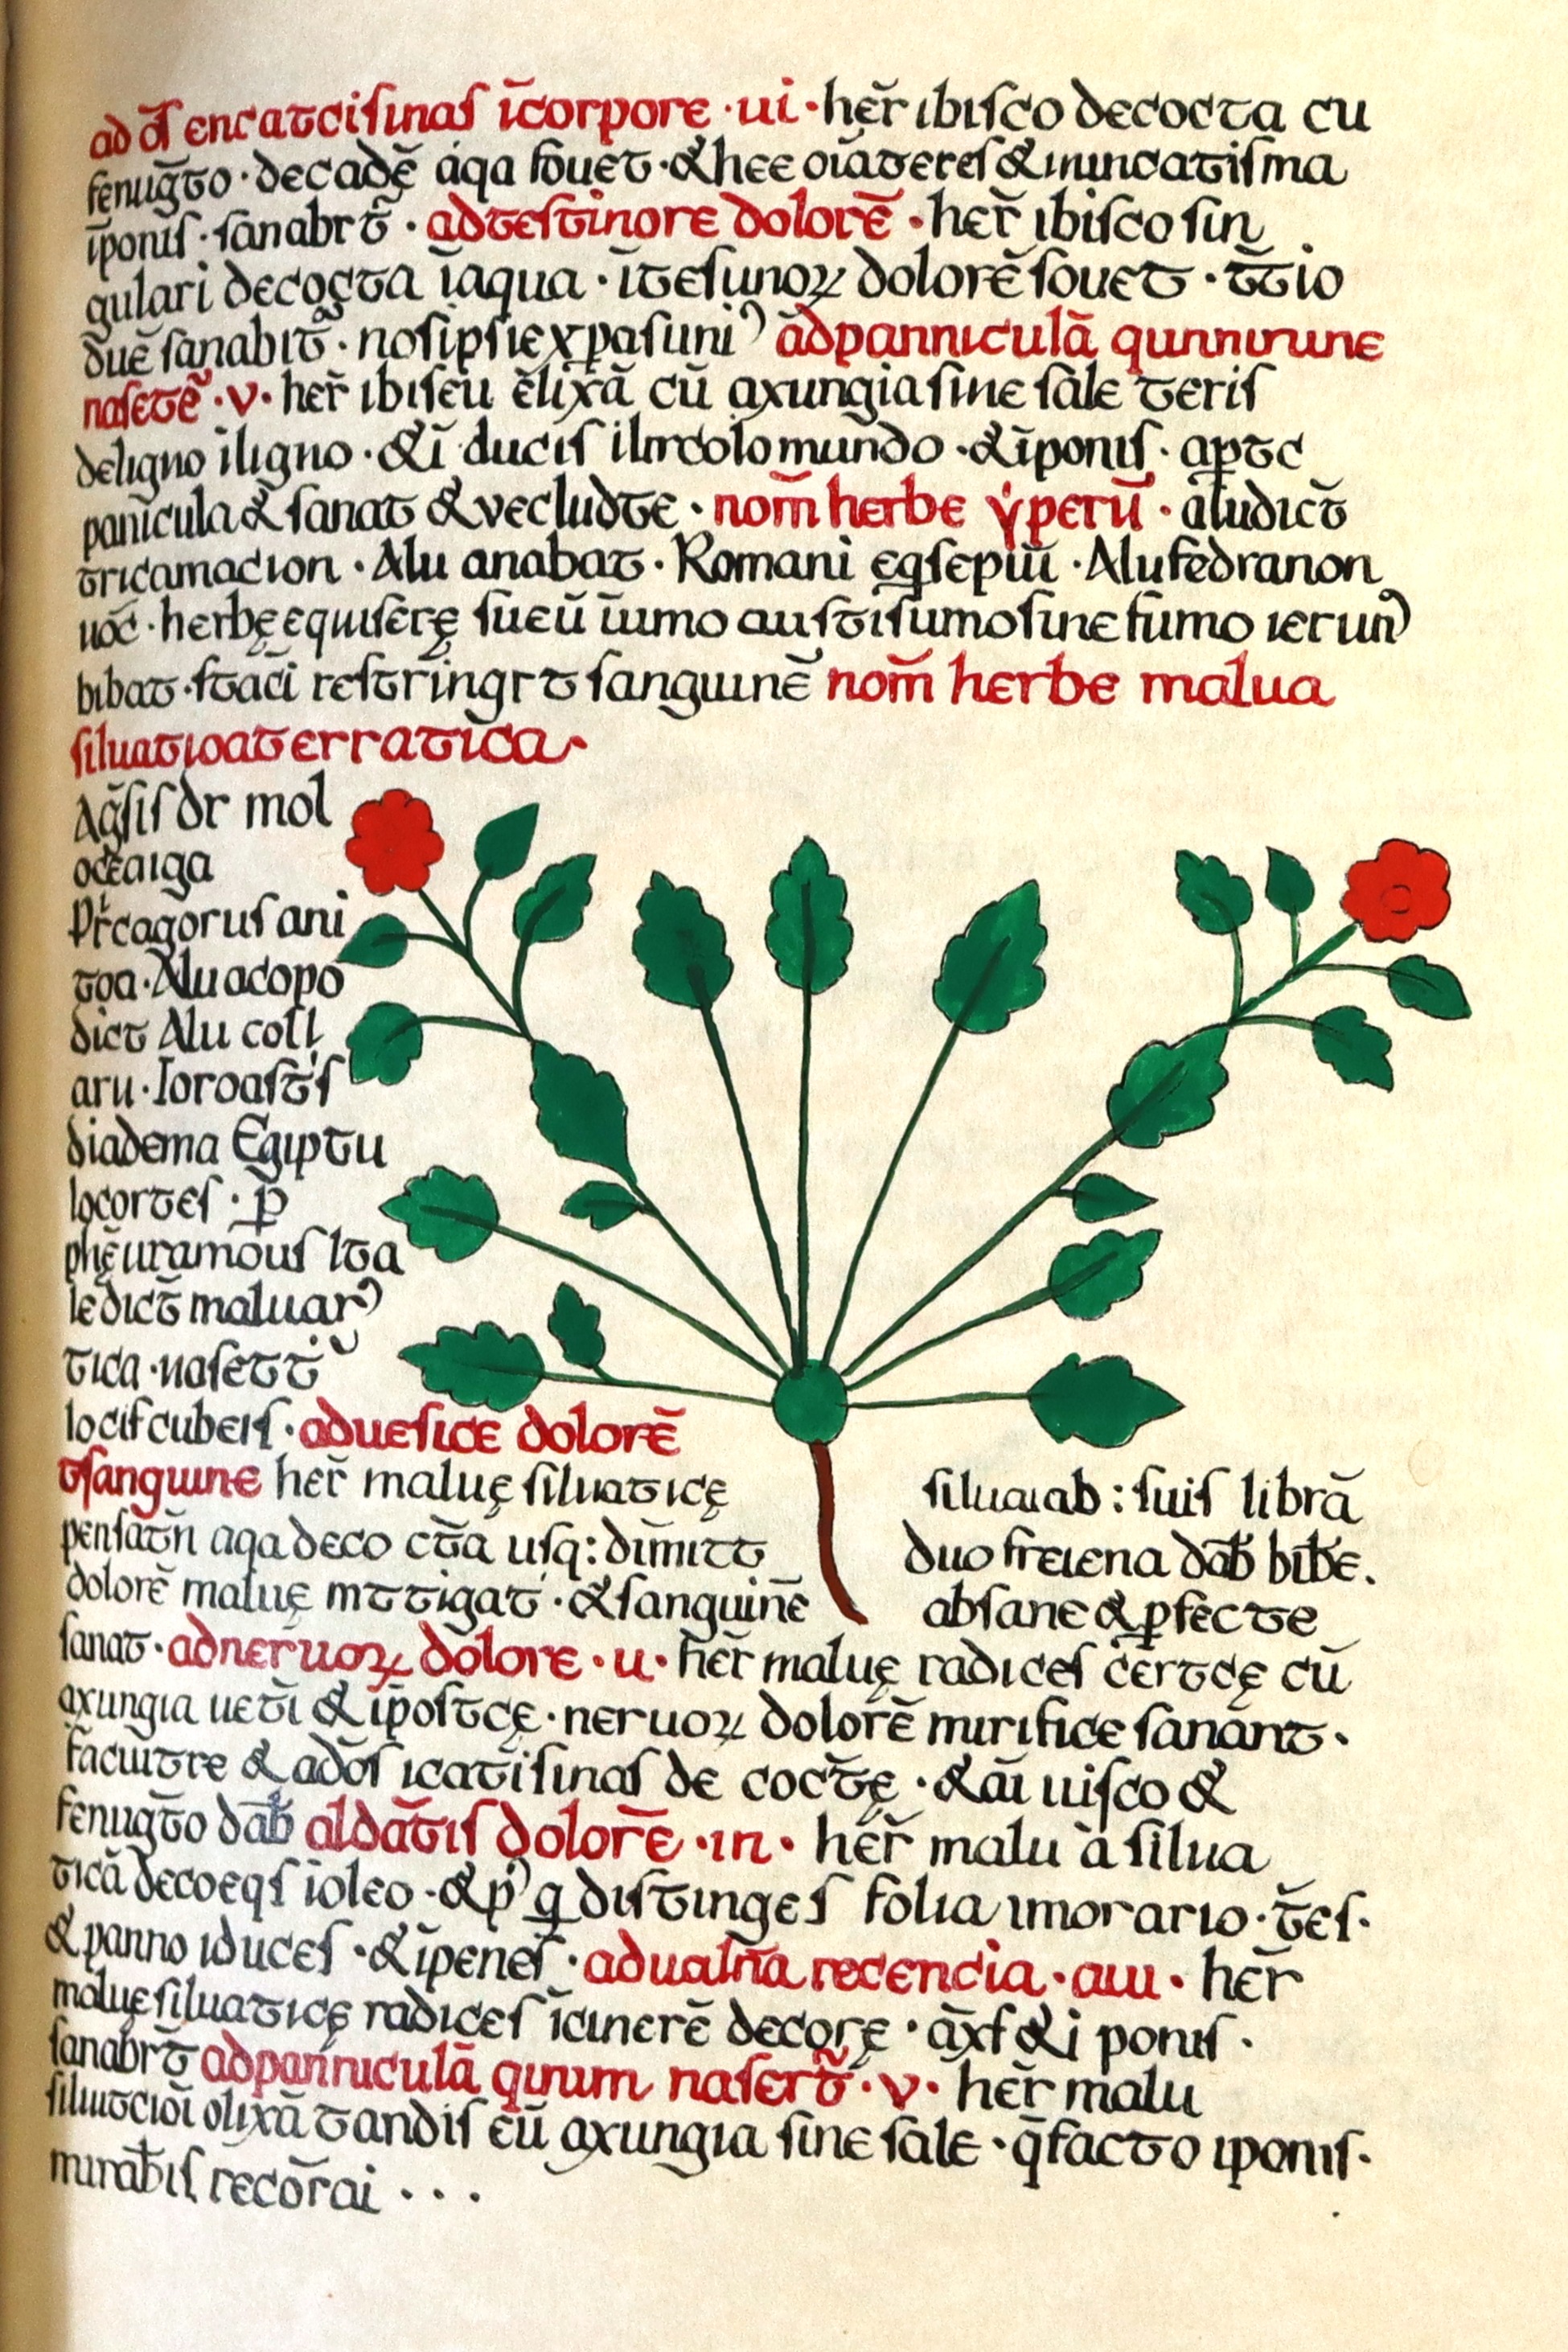 ad os̄ encatcisinas īcorpore · ui · her̄ ibisco decocta cu
fenuḡto · decadē aqa fouet · & hee oīateres & inuncatisma
īponis · sanabrt̄ · adtestinore dolorē · her̄ ibisco sin
gulari decocta īaqua · ītesunoꝝ dolorē souet · t̄tio
duē sanabit̄ · nosipsiexꝑasuni ādpanniculā qunnirune
nasetē · v · her̄ ibiseu ēlixā cū axungia sine sale teris
deligno iligno · &ī ducis ilircolo mundo · & īponis · aptc
panicula & sanat & vecludte · nom̄ herbe ẏperū · aludict̄
tricamacion · Alu anabat · Romani eqsepiū · Alu fedranon
uoc̄ · herbę equiserę sueū ūimo austisumo sine fumo ierun
bibat · stacī restringrt sanguinē nom̄ herbe malua
siluatioaterratica ·
Aḡsis dr mol
oceaiga
Prcagorus ani
toa · Alu acopo
dict Alu coll
aru · Ioroast's
diadema Egiptu
locortes · p̄
phēuramous Ita
le dict̄ maluar
tica · nasett̄
locis cubeis · aduesice dolorē
tsanguine her̄ maluę siluaticę siluaiab : suis librā
pensatn̄ aqa deco ct̄a usq: dim̄itt duo freiena dab̄ bibe.
dolorē maluę mttigat · & sanguinē absane & ꝑfecte
sanat · adneruoꝝ dolore · u · her̄ maluę radices certcę cū
axungia uetī & ip̄ostcę · neruoꝝ dolorē mirifice sanant ·
facuitre & ados̄ icatīsinas de coctę̄ · & aī uisco &
fenuḡto dab̄ aldāt̄is dolorē · in · her̄ malu à silua
ticā decoeqs ioleo · & p̄ q distinges folia imorario · t̄es ·
& panno iduces · & īpenes · adualn̄a recencia · aiu · her̄
maluę siluaticę radices īcinerē decorę · āxf & i ponis ·
sanabrt̄ adpanniculā qinum nasert̄ · v · her̄ malu
siluitcioī olixā tandis eū axungia sine sale · q̄facto iponis ·
mirab̄is recōrai . . .